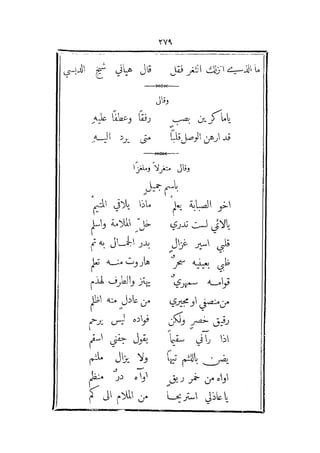 ٢٧٩
ما الذي انزلك الثغر فقل قال هياني شيخ الدبسي
وقال
ياما كرين بصب رفقًا وعطفًا عليه
قد ارهن الوصل قلبًا متى يرد اليه
وقال متغزلاً وملغزًا
باسم جميل
اخو الصبابة يعلم ماذا يلاقي المتيم
يالائمي لست تدري خل الملامة واسلم
قلبي اسير غزال بدر الجمال به تم
ظبي بعينيه سحرٌ هاروت منه تعلم
قوامه سمهري يهتز والطرف لهذم
من منصفي او مجيري من عادل منه اظلم
رقيق خصر ولكن فواده ليس يرحم
اذا رآني سقيمًا يقول جفني اسقم
يضن باللثم تيهًا ولا يزال ملثم
اواه من خمر ريق اواه در منظم
يا عاذلي استريحا من الملام الى كم